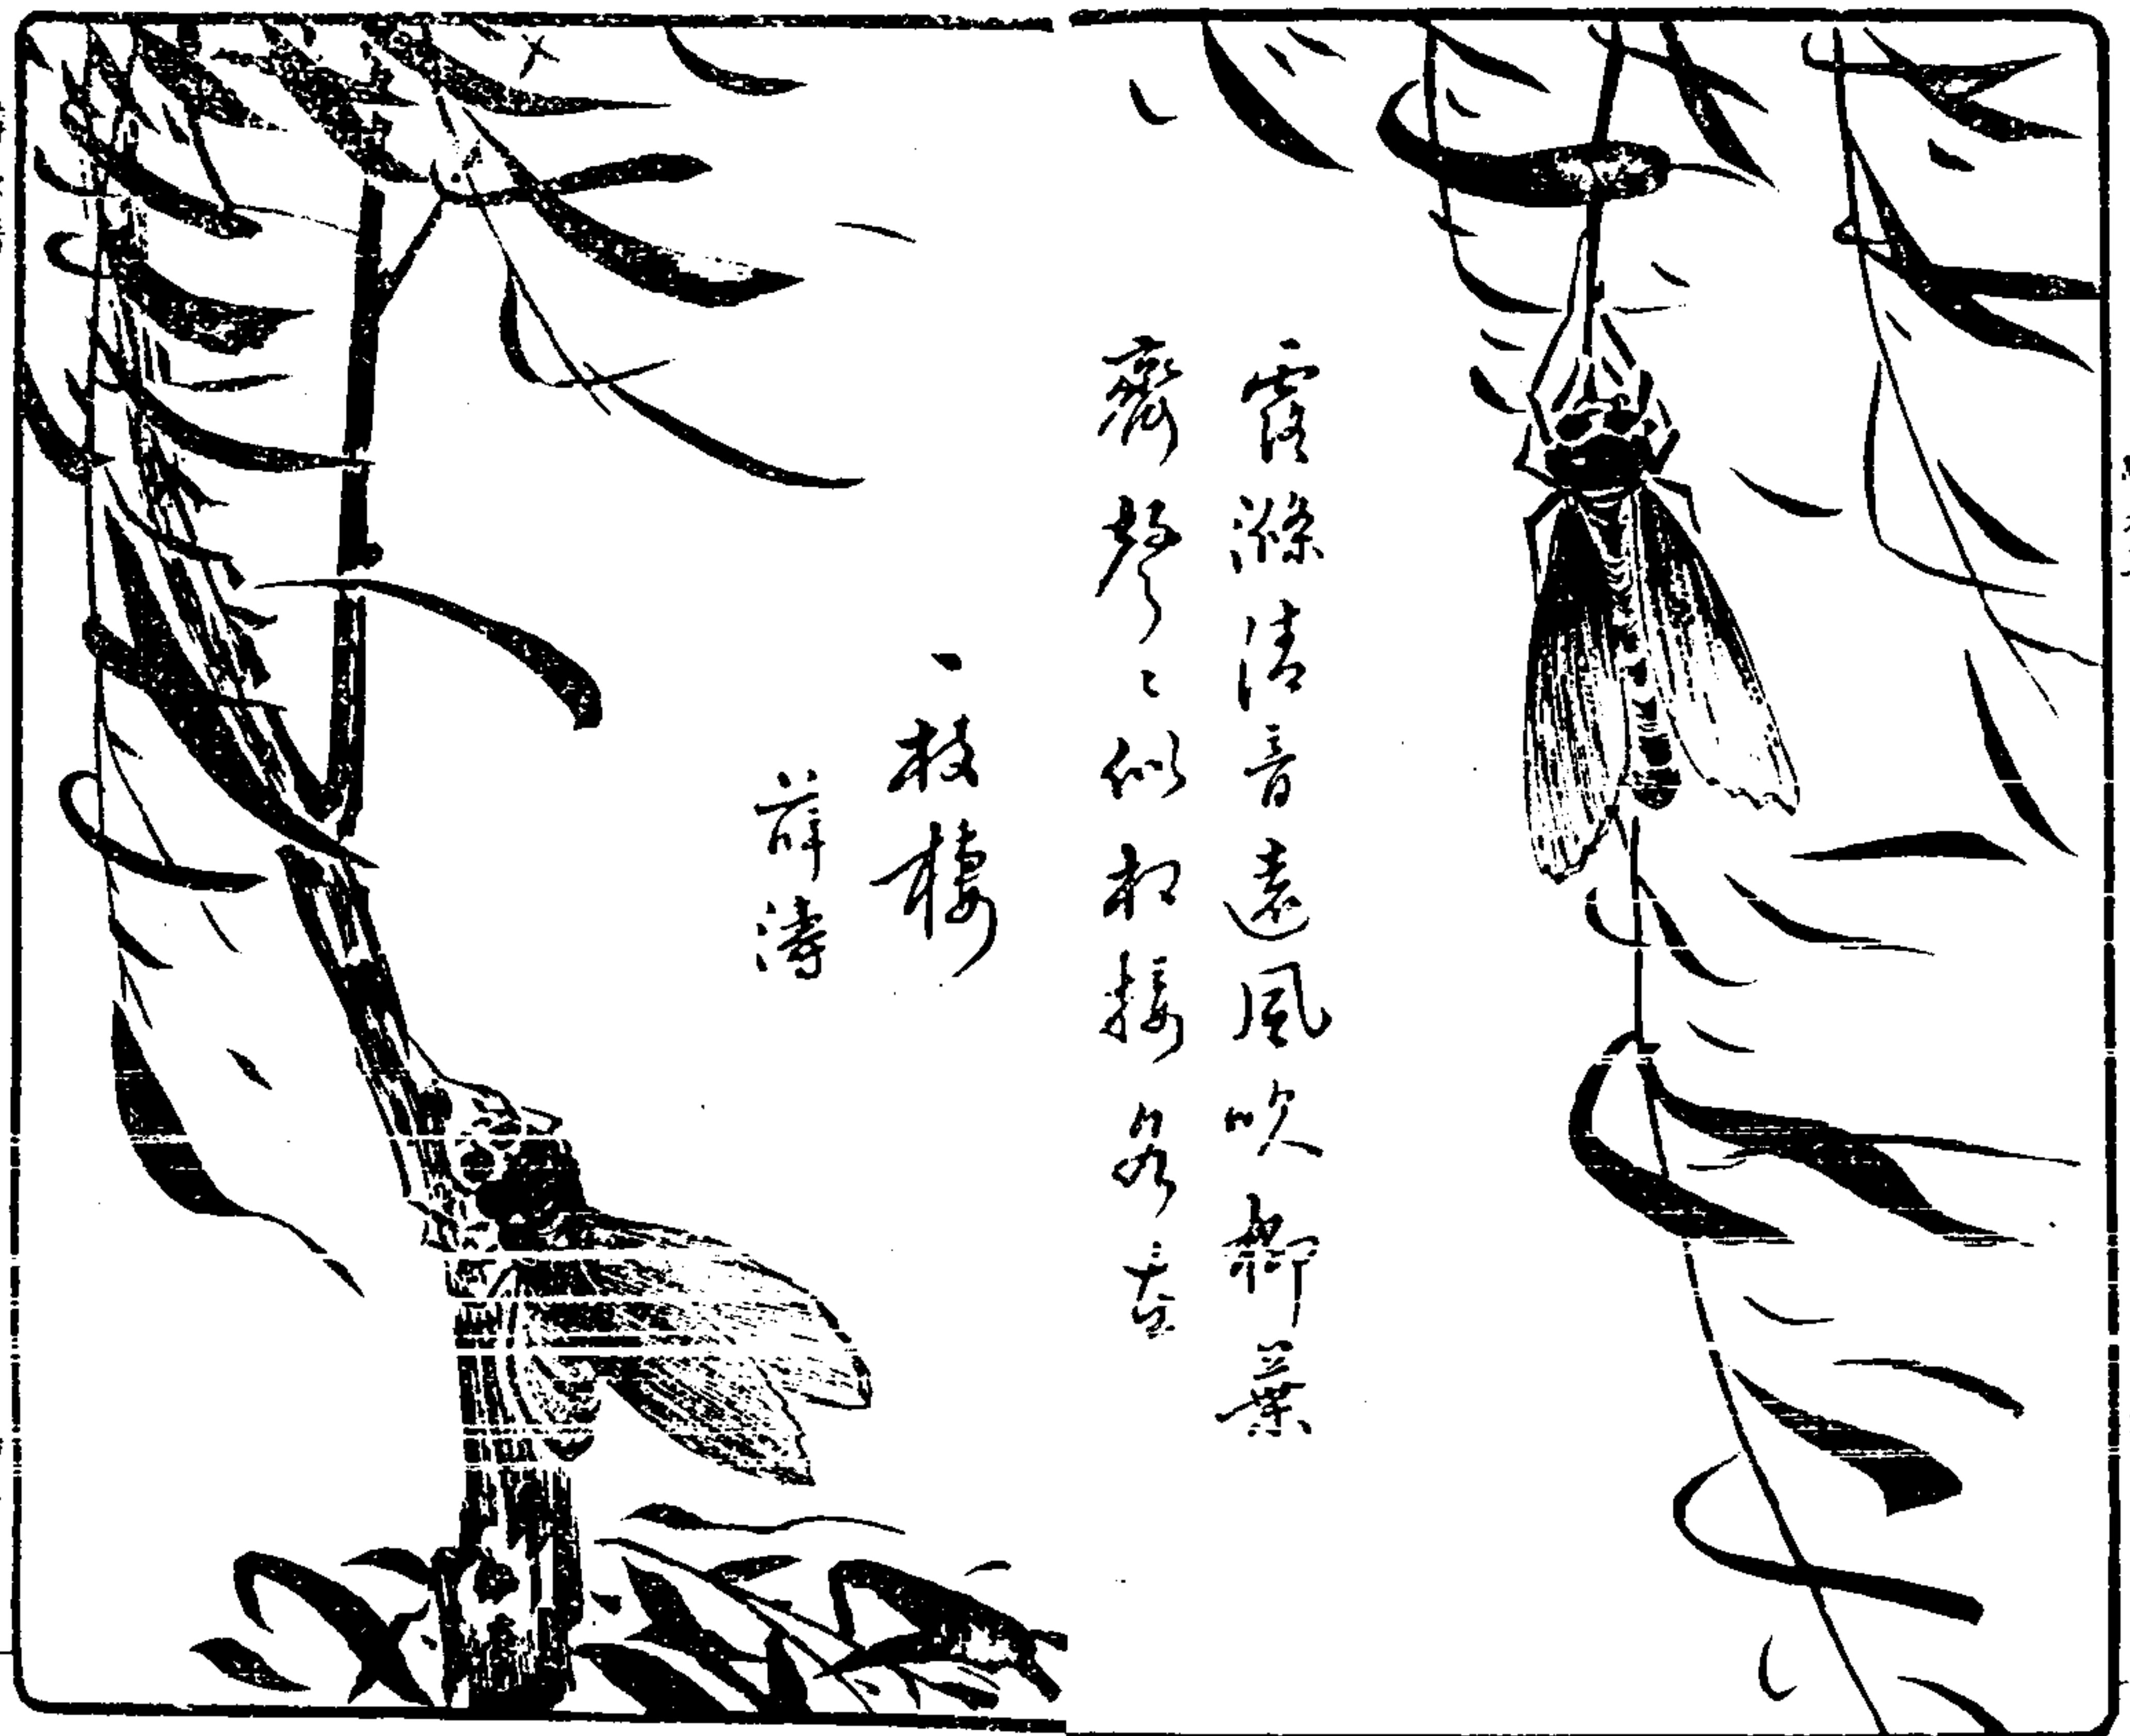 露滌清音遠風吹柳葉
齊聲〻似相接各在
一枝棲
薛濤